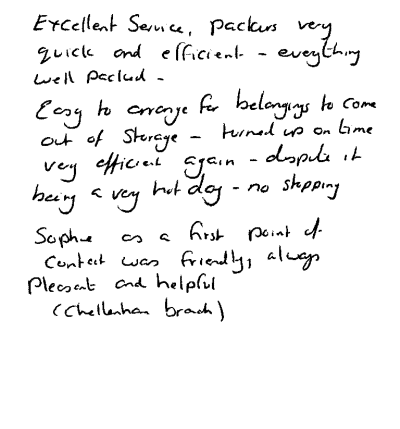 Excellent Service, packers very
quick and efficient - everything
well packed -
Easy to arrange for belongings to come
out of storage - turned up on time
very efficient again - despite it
being a very hot day - no stopping
Sophie as a first point of
contact was friendly, always
pleasant and helpful
(Cheltenham branch)